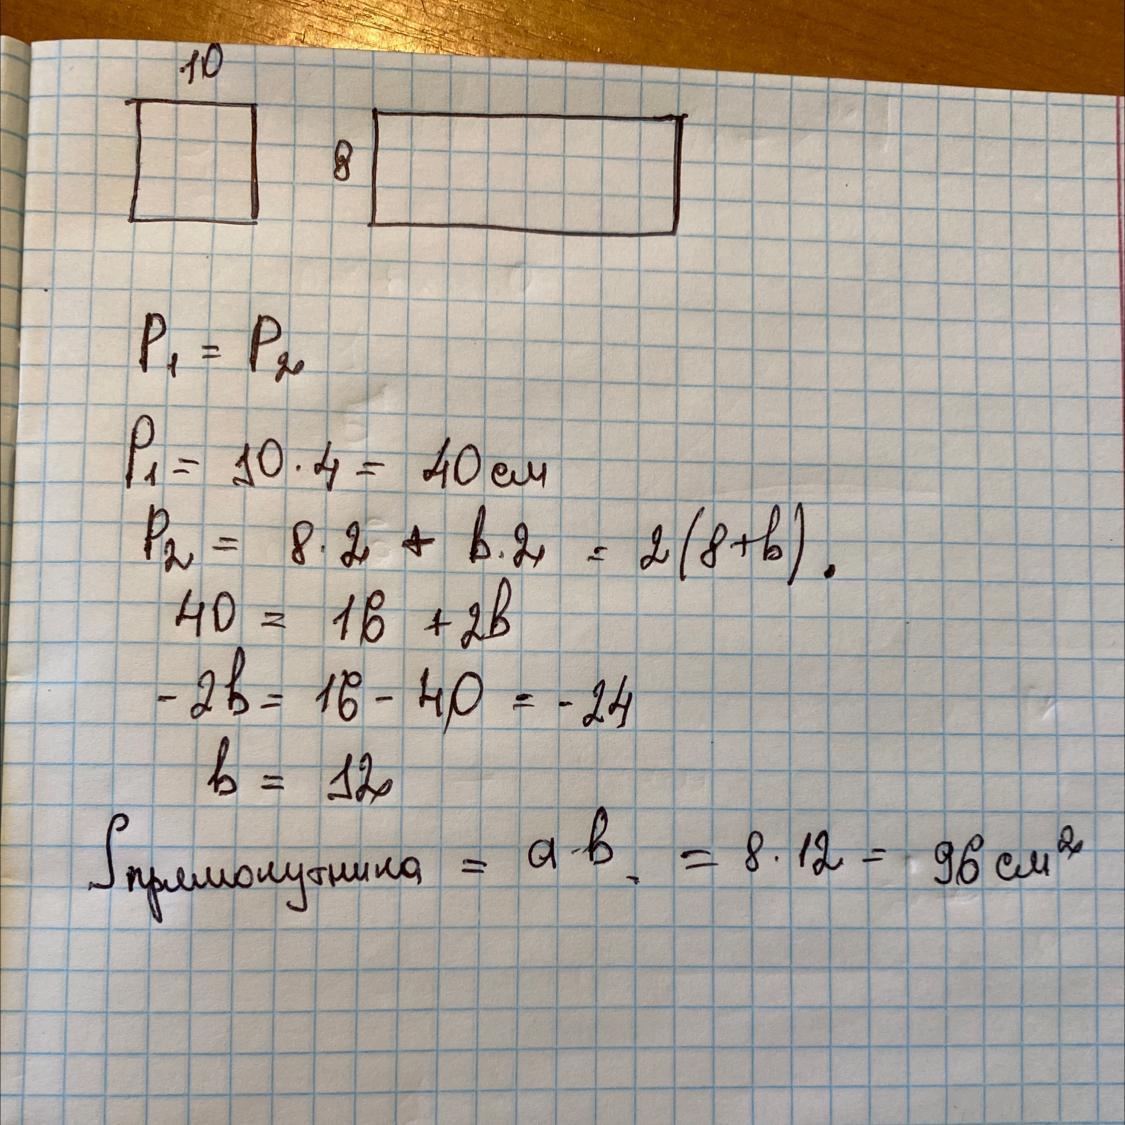 10
8
P₁ = P₂
P₁ = 10·4 = 40 см
P₂ = 8·2 + b·2 = 2(8+b).
40 = 16 + 2b
-2b = 16 - 40 = -24
b = 12
Sпрямокутника = a·b = 8·12 = 96 см²